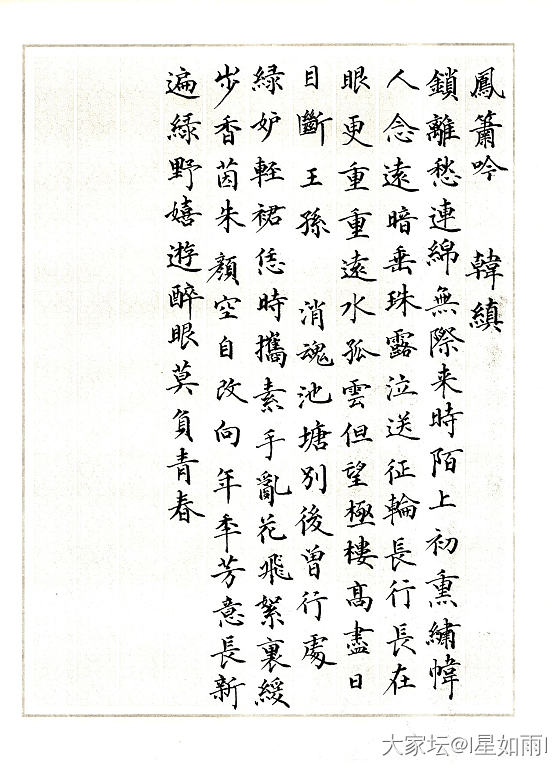 鳳簫吟　韓縝
鎖離愁連綿無際来時陌上初熏繡幃
人念遠暗垂珠露泣送征輪長行長在
眼更重重遠水孤雲但望極樓高盡日
目斷王孫　消魂池塘別後曽行處
緑妒輕裙恁時攜素手亂花飛絮裏緩
步香茵朱顏空自改向年年芳意長新
遍緑野嬉遊醉眼莫負青春
大家坛@|星如雨|